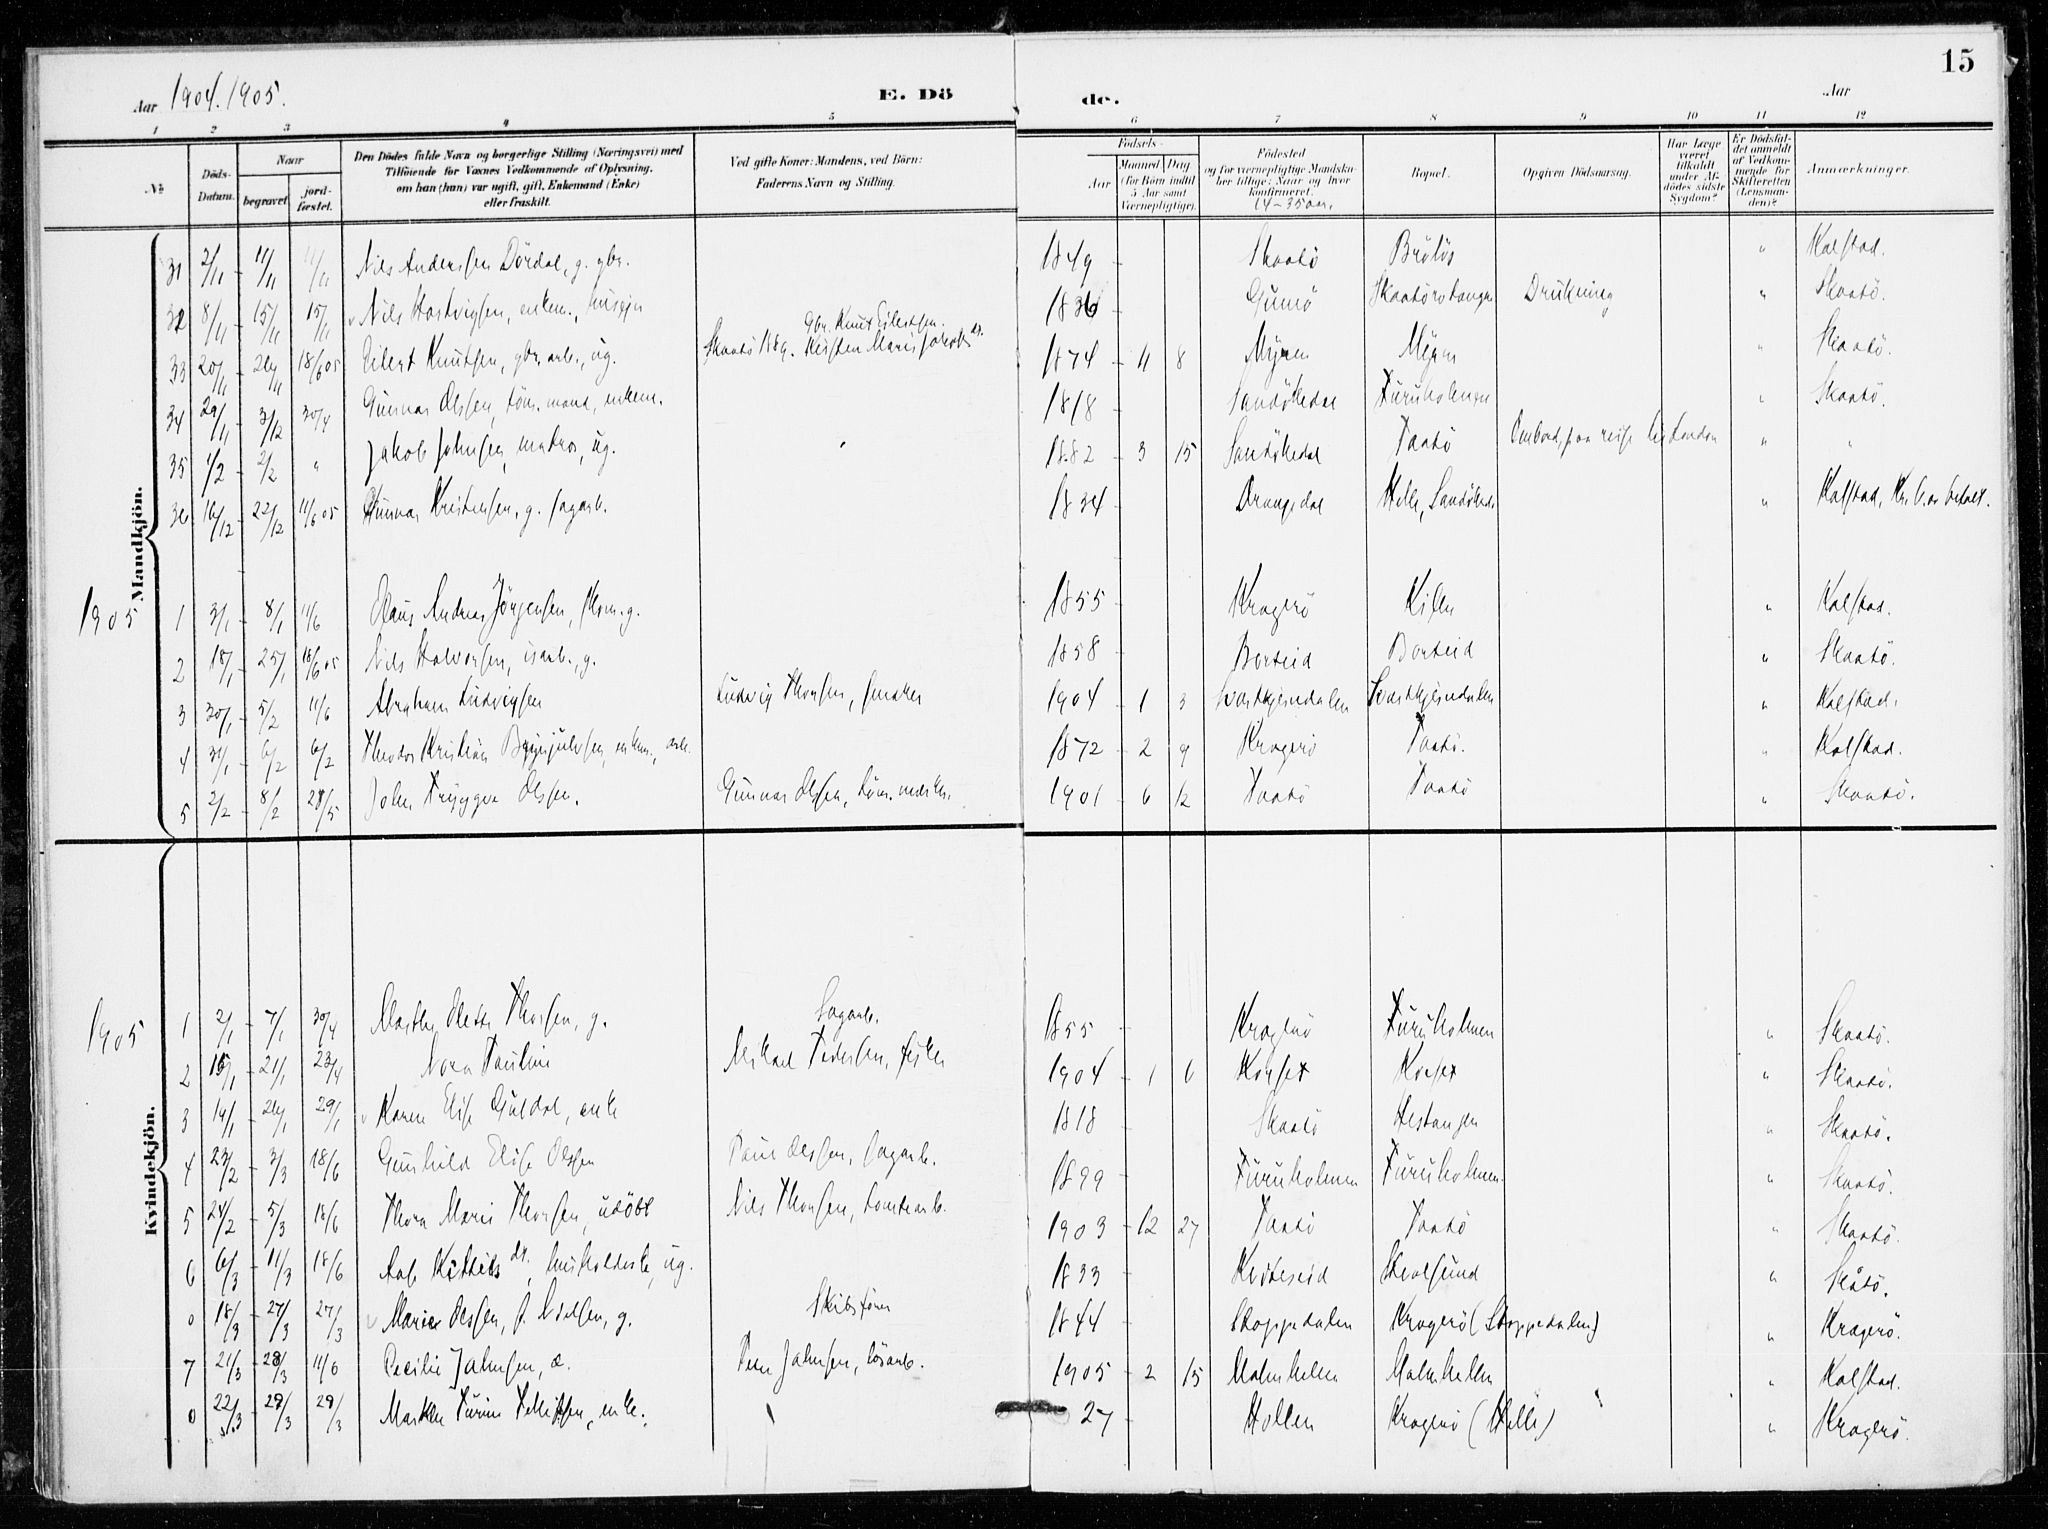 15
Aar 1904. 1905.
E. Dö de.
Aar
1 2 3 4 5 6 7 8 9 10 11 12
№
Döds-Datum.
Naar
begravet.
jord-fæstet.
Den Dödes fulde Navn og borgerlige Stilling (Næringsvei) med
Tilföiende for Voxnes Vedkommende af Oplysning,
om han (hun) var ugift, gift, Enkemand (Enke)
eller fraskilt.
Ved gifte Koner: Mandens, ved Börn:
Faderens Navn og Stilling.
Födsels-
Aar
Maaned Dag
(for Börn indtil 5 Aar samt Værnepligtige).
Födested
og for værnepligtige Mandskaber tillige: Naar og hvor konfirmeret.
14-35 aar.
Bopæl.
Opgiven Dödsaarsag.
Har Læge været tilkaldt under Afdödes sidste Sygdom?
Er Dödsfaldet anmeldt af Vedkommende for Skifteretten (Lensmanden)?
Anmærkninger.
Mandkjön.
31 2/11 11/11 11/11 Nils Anderssen Dördal, g. gbr. 1849 Skaatö Bråtös " Kalstad.
32 8/11 15/11 15/11 Nils Hartvigsen, enkem., huseier 1836 Gumö Skaatörotangen Drukning " Skaatö.
33 20/11 26/11 18/6 05 Eilert Knutsen, gbr. arb., ug. Gbr. Knut Eilertsen. Skaatö 189. Kirsten Marie Jakobsdr. 1874 11 8 Myren Myren " Skaatö.
34 29/11 3/12 30/4 Gunnar Olssen, töm. mand, enkem. 1818 Sandökedal Furuholmen " Skaatö.
35 1/2 2/2 " Jakob Johnsen, matros, ug. 1882 3 15 Sandökedal Taatö Ombord, paa reise til London " "
36 16/12 22/12 11/6 05 Gunnar Kristensen, g. sagarb. 1834 Drangedal Helle, Sandöked. " Kalstad,
1905
1 3/1 8/1 11/6 Claus Andreas Jörgensen, g. 1855 Kragerö Kilen " Kalstad.
2 18/1 25/1 18/6 05 Nils Halvorsen, isarb., g. 1858 Borteid Borteid " Skaatö.
3 30/1 5/2 11/6 Abraham Ludvigsen Ludvig Thorsen, smaker 1904 1 3 Svartkjendalen Svartkjendalen " Kalstad.
4 31/1 6/2 6/2 Theodor Kristian Brynjulvsen, enkem., arb. 1872 2 9 Kragerö Taatö. " Kalstad.
5 2/2 8/2 28/5 John Tryggve Olssen. Gunnar Olssen, töm. mester. 1901 6 12 Taatö Taatö " Skaatö.
Kvindekjön.
1905
1 2/1 7/1 30/4 Marthe Olette Thorsen, g. Sagarb. 1855 Kragerö Furuholmen " Skaatö.
2 15/1 21/1 23/4 Nora Pauline Mikael Pedersen, fisker 1904 1 6 Korset Korset " Skaatö.
3 14/1 26/1 29/1 Karen Elise Guldal, enke 1818 Skaatö Hestangen " Skaatö.
4 23/2 3/3 18/6 Gunhild Elise Olssen Paul Olssen, sagarb. 1899 Furuholmen Furuholmen. " Skaatö.
5 24/2 5/3 18/6 Thora Marie Thorsen, udöbt Nils Thorsen, tomtearb. 1903 12 27 Taatö Taatö " Skaatö.
6 6/3 11/3 18/6 Aase Kittilsdr., husholderske, ug. 1833 Kviteseid Skolsund " Skåtö.
0 18/3 27/3 27/3 Marie Olssen, f. Nilssen, g. Skibsförer 1844 Stoppedalen Kragerö (Stoppedalen) " Kragerö.
7 21/3 28/3 11/6 Cecilie Johnsen, æ. Peder Johnsen, lösarb. 1905 2 15 Malmhellen Malmhellen " Kalstad.
0 22/3 29/3 29/3 Marthe Turine Tellefsen, enke. 27 Hollen Kragerö (Helle) " Kragerö.